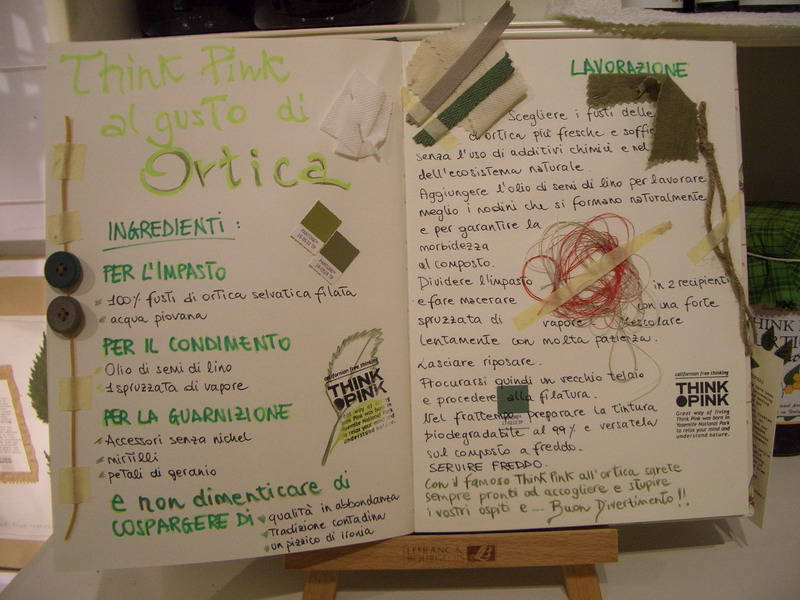 Think Pink
al gusto di
Ortica
INGREDIENTI:
PER L'IMPASTO
100% fusti di ortica selvatica filata
acqua piovana
PER IL CONDIMENTO
Olio di semi di lino
1 spruzzata di vapore
PER LA GUARNIZIONE
Accessori senza nichel
mirtilli
petali di geranio
e non dimenticare di
COSPARGERE DI
qualità in abbondanza
Tradizione contadina
un pizzico di ironia
californian free thinking
THINK
PINK
Great way of living
Think Pink was born in
Yosemite National Park
to relax your mind and
understand nature.
LAVORAZIONE
Scegliere i fusti delle
d'ortica più fresche e soffic
senza l'uso di additivi chimici e nel
dell'ecosistema naturale
Aggiungere l'olio di semi di lino per lavorare
meglio i nodini che si formano naturalmente
e per garantire la
morbidezza
al composto.
Dividere l'impasto in 2 recipienti
e fare macerare con una forte
spruzzata di vapore mescolare
lentamente con molta pazienza.
Lasciare riposare.
Procurarsi quindi un vecchio telaio
e procedere alla filatura.
Nel frattempo preparare la tintura
biodegradabile al 99% e versatela
sul composto a freddo.
SERVIRE FREDDO.
Con il famoso Think Pink all'ortica sarete
sempre pronti ad accogliere e stupire
i vostri ospiti e .... Buon Divertimento!!
californian free thinking
THINK
PINK
Great way of living
Think Pink was born in
Yosemite National Park
to relax your mind and
understand nature.
LEFRANC &
BOURGEOIS